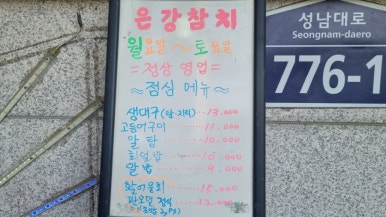 은강참치
월요일~토요일
=정상 영업=
≈점심 메뉴≈
생대구(탕·지리)···13.000
고등어구이···11.000
알 탕···10.000
회덮밥···10.000
알 밥···9.000
활어물회···15.000
정식···12.000
성남대로
Seongnam-daero
776-1